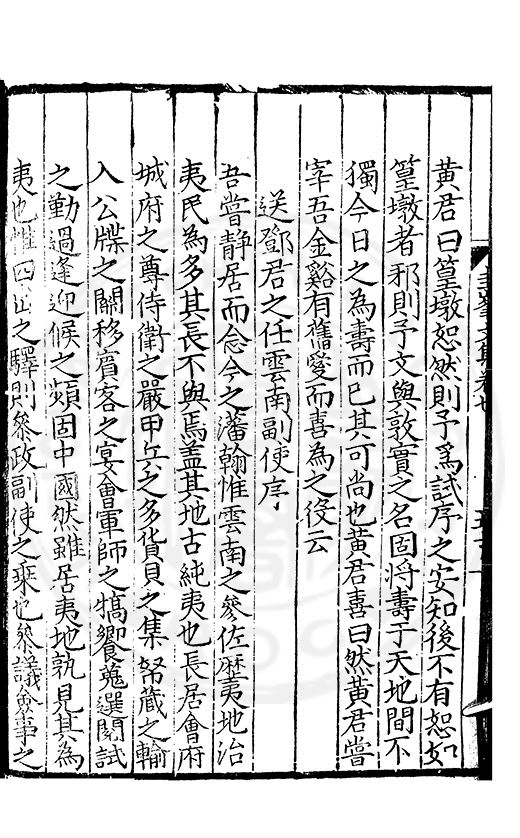 黃君曰篁墩恕然則予爲試序之安知後不有恕如
篁墩者邪則予文與敦實之名固将壽于天地間不
獨今日之為壽而已其可尚也黃君喜曰然黃君嘗
宰吾金谿有舊愛而喜為之役云
送鄧君之任雲南副使序
吾嘗靜居而念今之藩翰惟雲南之參佐歴夷地治
夷民為多其長不與焉盖其地古純夷也長居會府
城府之尊侍衛之嚴甲兵之多貨貝之集帑藏之輸
入公牒之關移賓客之宴會軍師之犒饗蒐選閱試
之勤過逢迎候之頻固中國然雖居夷地孰見其為
夷也惟四出之驛則參政副使之乘也參議僉事之